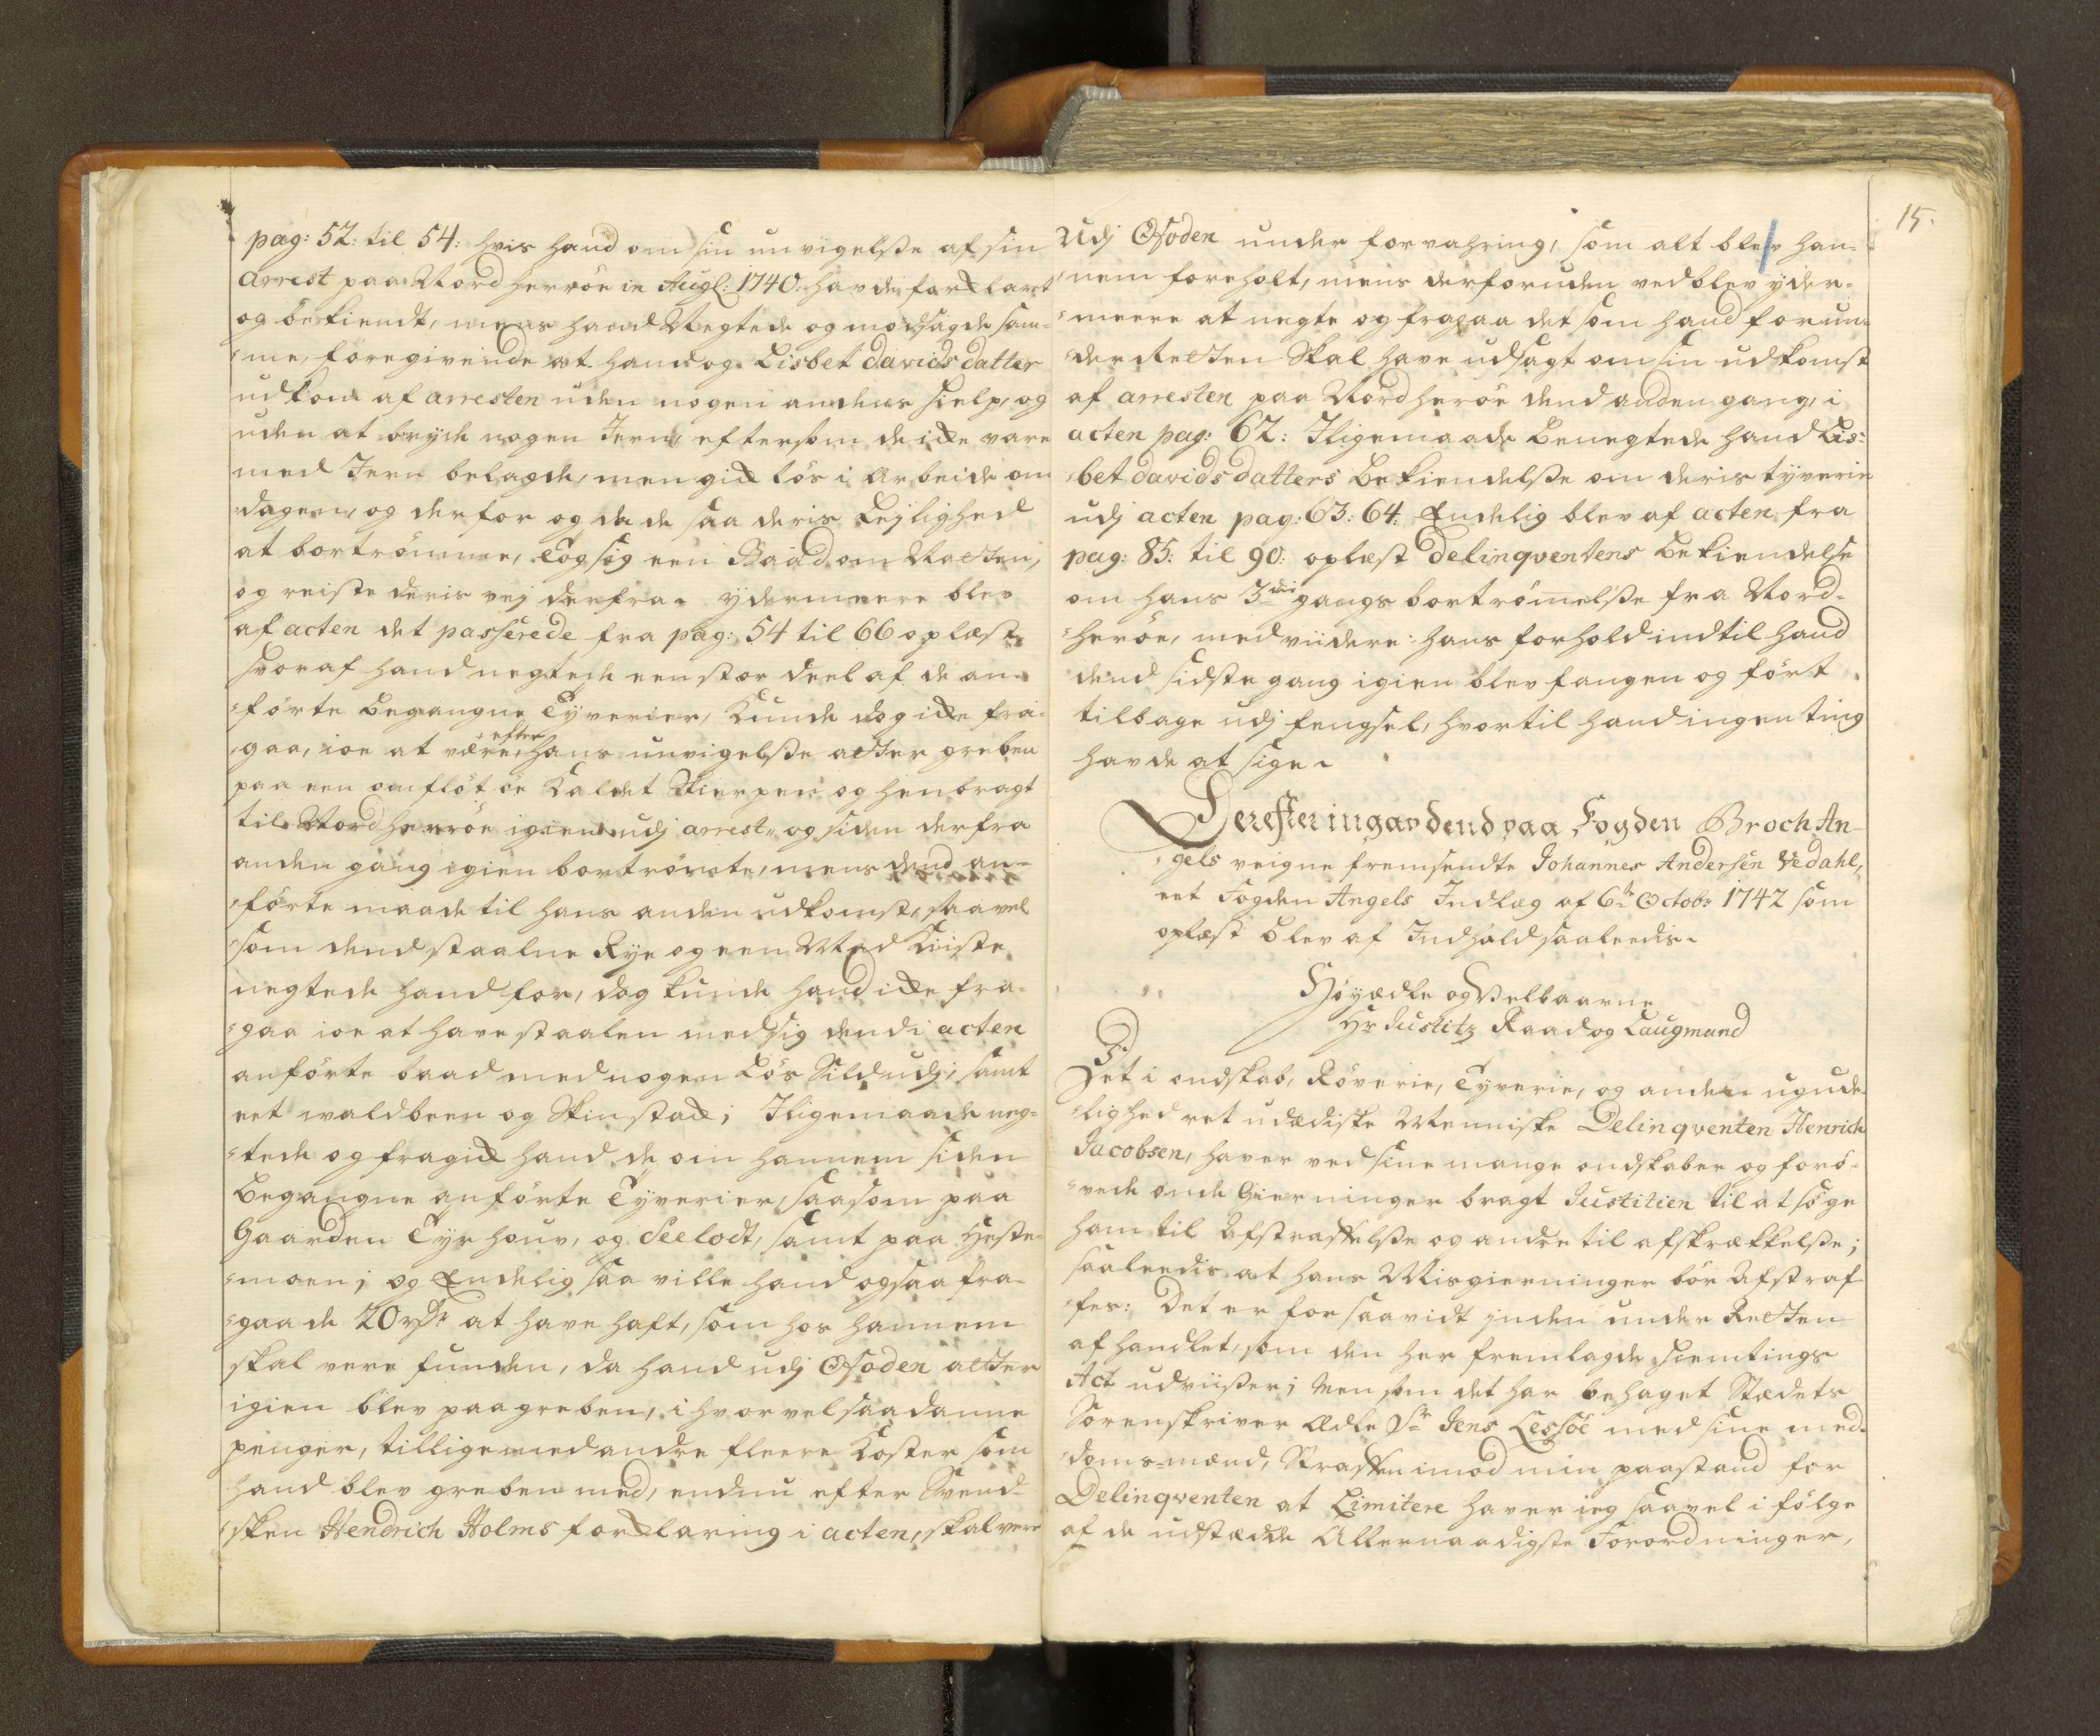 pag: 52: til 54: hvis hand om sin unvigelse af sin
arrest paa Nordherröe in Augl: 1740: havde forklart
og bekiendt, mens hand Negtede og modsagde sam-
-me, foregivende at hand og Lisbet davids datter
udkom af arresten uden nogen andens hielp, og
uden at bryde nogen Jern, eftersom de ikke vare
med Jern belagde, men gik lös i Arbeide om
dagen, og derfor og da de saa deris Lejlighed
at bortrömme, tog sig een Baad om Natten,
og reiste deris vej derfra. ydermeere blev
af acten det passerede fra pag: 54 til 66 oplæst
hvoraf hand negtede een stor deel af de an-
-förte begangne Tyverier, Kunde dog ikke fra-
-gaa, ioe at være efter hans unvigelse atter greben
paa een omflöt öe Kaldet Skierpen og henbragt
til Nordherröe igien udj arrest, og siden derfra
anden gang igien bortrömte, mens dend an-
-förte maade til hans anden udkomst, saavel
som dend staalne Rye og een Mad Kiiste
negtede hand for, dog kunde hand ikke fra-
-gaa ioe at have staalen med sig dend i acten
anförte baad med nogen Lös Sild udj, samt
eet valdbeen og Skinstak; Iligemaade neg-
-tede og fragik hand de om hannem siden
begangne anförte Tyverier, saasom paa
Gaarden Tyrhouv, og Seelodt, samt paa Heste-
-moen; og Endelig saa ville hand ogsaa fra-
-gaa de 20 rdr at have haft, som hos hannem
skal vere funden, da hand udj Ofoden atter
igien blev paagreben, ihvorvel saadanne
penger, tillige med andre fleere Koster som
hand blev greben med, endnu efter Svend-
-sken Hendrich Holms forklaring i acten, skal vere
15.
Udj Ofoden under forvahring, som alt blev han-
-nem foreholt, mens derforuden vedblev yder-
-meere at negte og fragaa det som hand for un-
-derretten skal have udsagt om sin udkomst
af arresten paa Nordheröe dend anden gang, i
acten pag: 62: Iligemaade benegtede hand Lis-
-bet davids datters bekiendelse om deris tyverie
udj acten pag: 63: 64: Endelig blev af acten fra
pag: 85: til 90: oplæst Delinqventens bekiendelse
om hans 3die gangs bortrömelse fra Nord-
-heröe, med viidere hans forhold indtil hand
dend sidste gang igien blev fangen og fört
tilbage udj fengsel, hvortil hand ingen ting
havde at sige.
Derefter ingav dend paa Fogden Broch An-
-gels veigne fremsendte Johannes Andersen Vedahl,
eet Fogden Angels Indlæg af 6te Octobr 1742 som
oplæst blev af Indhold saaleedis.
Höyædle og Velbaarne
Hr Justitz Raad og Laugmand
Det i ondskab, Röverie, Tyverie, og anden ugude-
-lighed ret udædiske Menniske Delinqventen Henrich
Jacobsen, haver ved sine mange ondskaber og forö-
-vede onde Gierninger bragt Justitien til at söge
ham til Afstraffelse og andre til afskrækkelse;
saaleedis at hans Misgierninger bör Afstraf-
-fes: Det er for saavidt inden under Retten
afhandlet, som den her fremlagde Hiemtings
Act udviiser; Men som det har behaget Stædets
Sorenskriver Ædle Sr Jens Lessöe med sine med-
doms-mænd, Straffen imod min paastand for
Delinqventen at Limitere haver ieg saavel i fölge
af de udstædde Allernaadigste Forordninger,